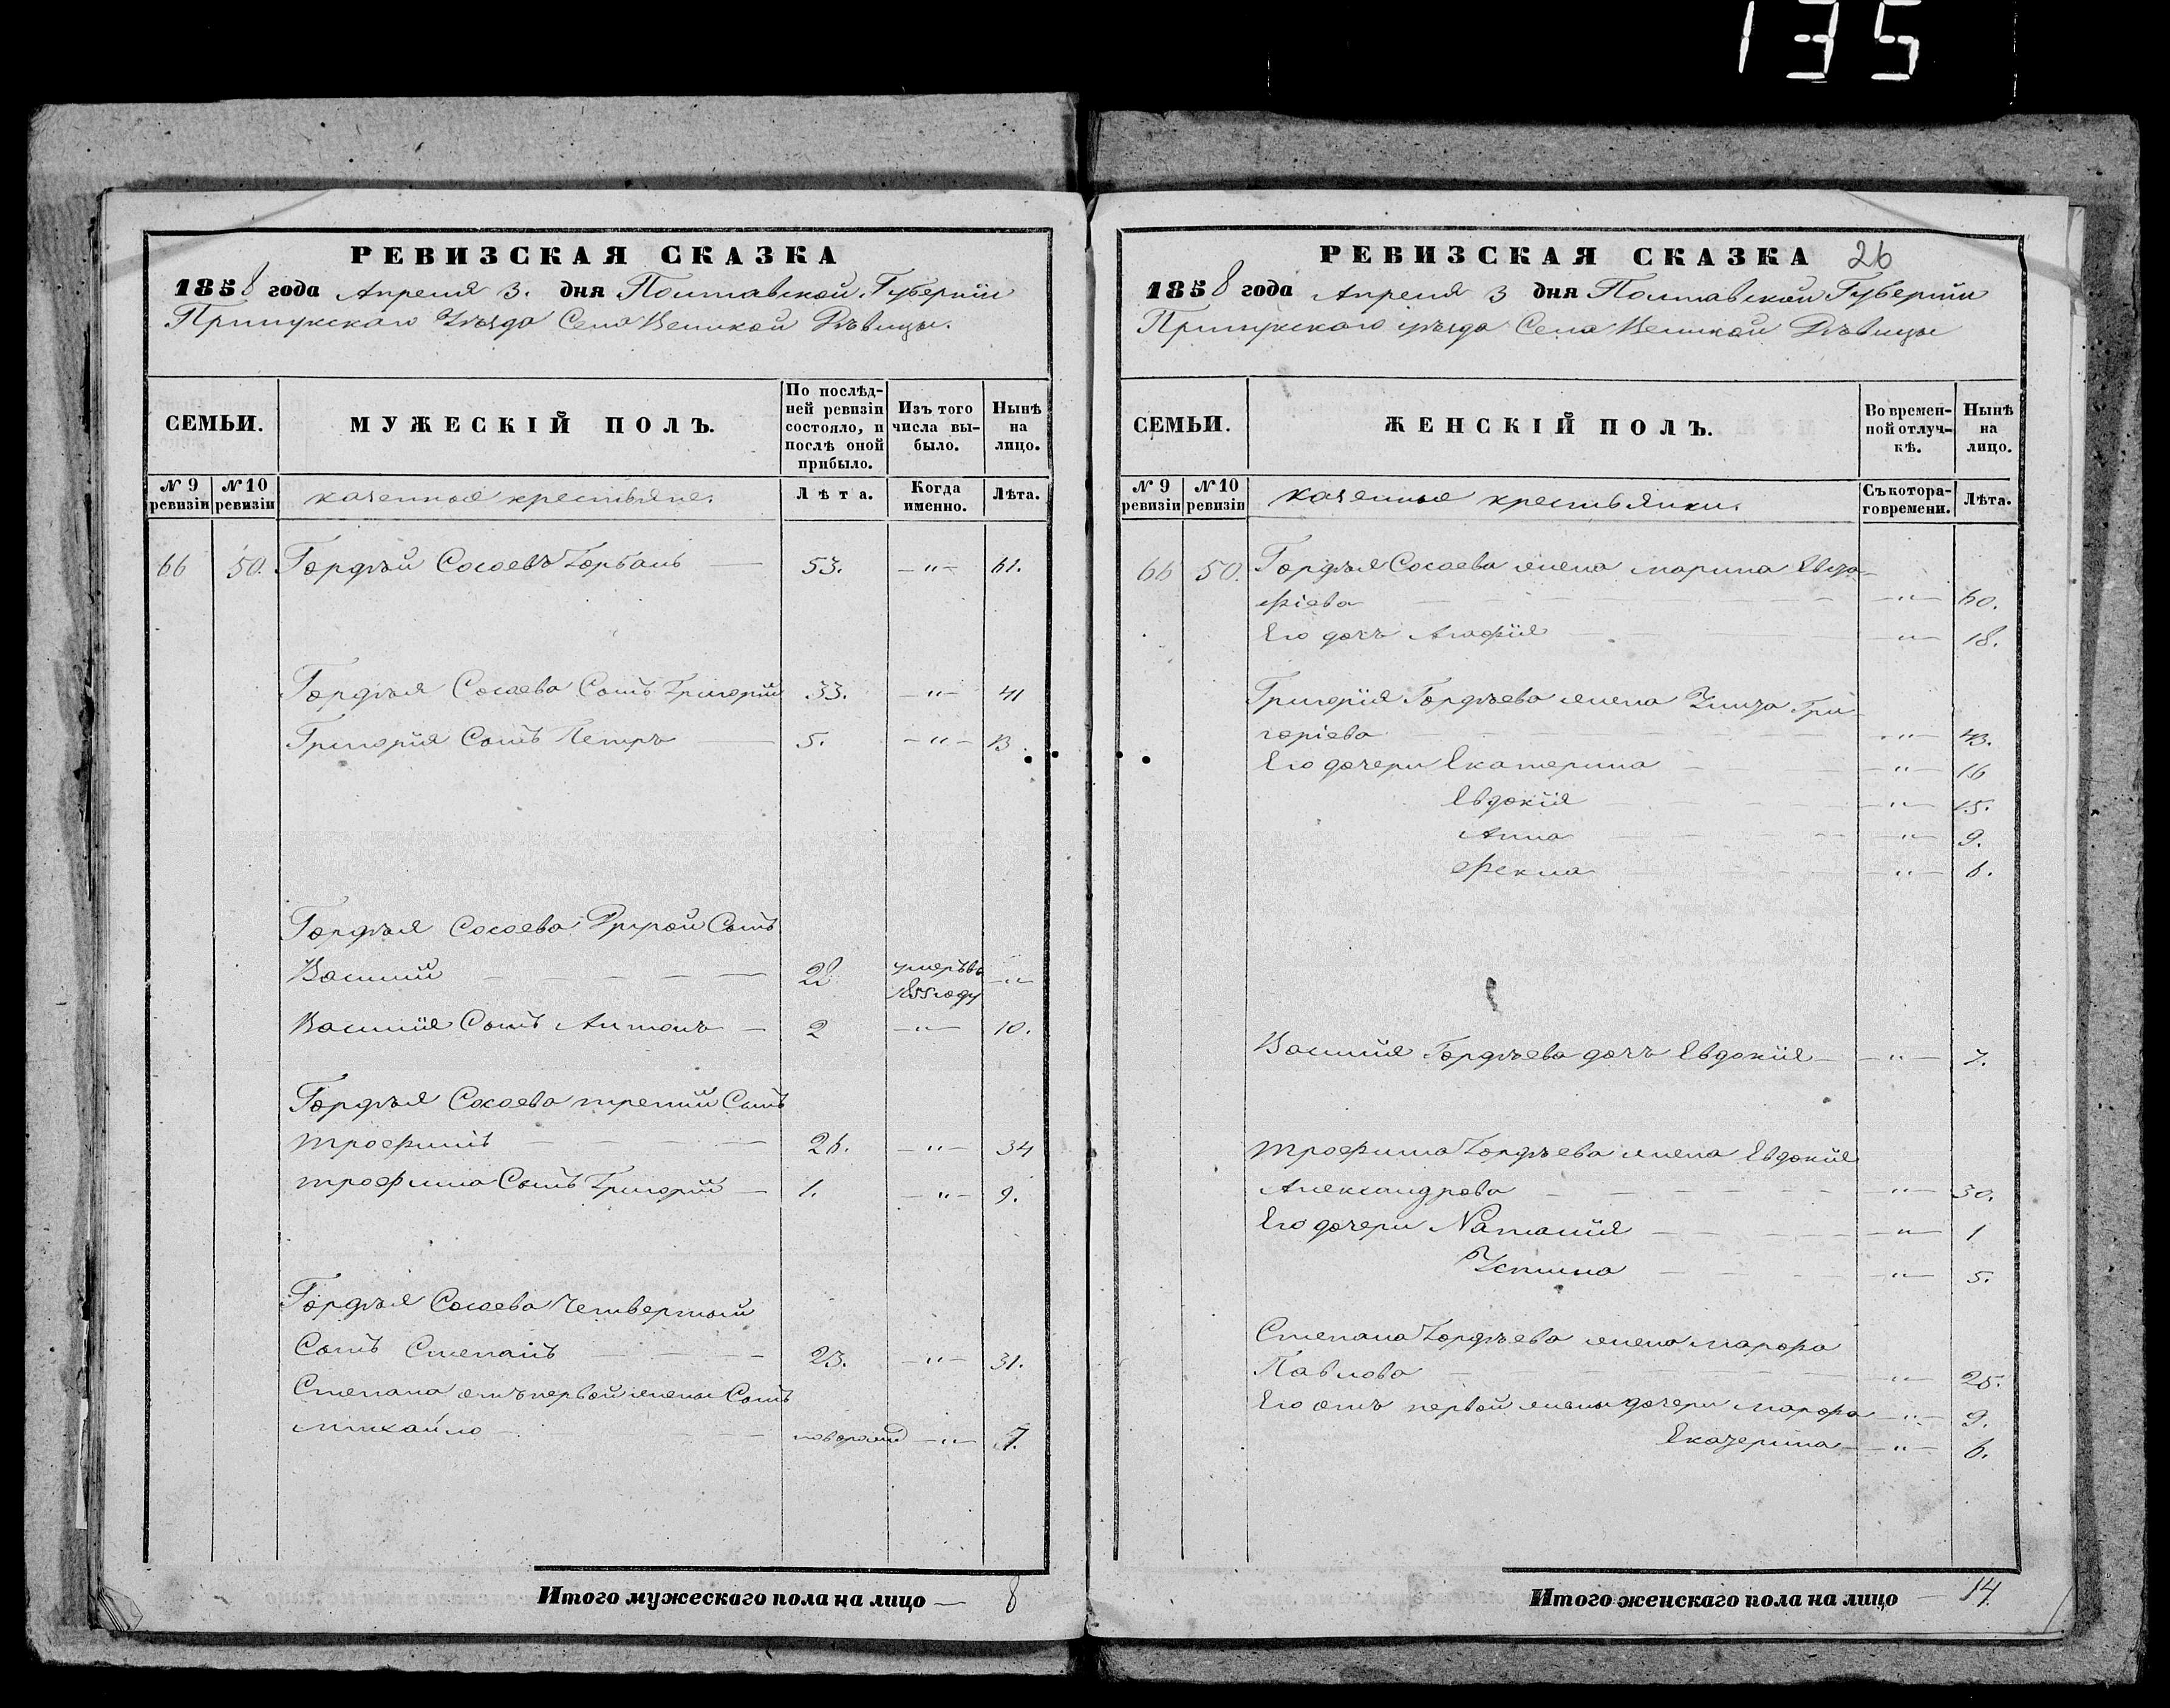 135
РЕВИЗСКАЯ СКАЗКА
1858 года Апреля 3. дня Полтавской Губернїи
Прилукскаго Уѣзда Села Великой Дѣвицы.
СЕМЬИ.
МУЖЕСКІЙ ПОЛЪ.
По послѣд-
ней ревизіи
состояло, и
послѣ оной
прибыло.
Изъ того
числа вы-
было.
Нынѣ
на
лицо.
№ 9
ревизіи
№ 10
ревизіи
казенные крестьяне.
Лѣта.
Когда
именно.
Лѣта.
66 50. Гордѣй Сосоевъ Горбань — 53. — " — 61.
Гордѣя Сосоева Сынъ Григорій 33. — " — 41
Григорія Сынъ Петръ — 5. — " — 13.
Гордѣя Сосоева Другой Сынъ
Василій — 28 умеръ въ 1855 году — " —
Василія Сынъ Антонъ — 2 — " — 10.
Гордѣя Сосоева третій Сынъ
Трофимъ — 26. — " — 34
Трофима Сынъ Григорій — 1. — " — 9.
Гордѣя Сосоева Четвертый
Сынъ Степанъ — 23. — " — 31.
Степана отъ первой жены Сынъ
Михайло — новорожд — " — 7.
Итого мужескаго пола на лицо — 8
РЕВИЗСКАЯ СКАЗКА 26
1858 года Апреля 3 дня Полтавской Губерніи
Прилукскаго уѣзда Села Великой Дѣвицы
СЕМЬИ.
ЖЕНСКІЙ ПОЛЪ.
Во времен-
ной отлуч-
кѣ.
Нынѣ
на
лицо.
№ 9
ревизіи
№ 10
ревизіи
казенные крестьянки.
Съ котора-
го времени.
Лѣта.
66 50. Гордѣя Сосоева жена Марина
фіева — " — 60.
Его дочь Агафія — " — 18.
Григорія Гордѣева жена Гри-
горіева — " — 43.
Его дочери Екатерина — " — 16
Евдокія — " — 15.
Анна — " — 9.
Фекла — " — 6.
Василія Гордѣева дочь Евдокія — " — 7.
Трофима Гордѣева жена Евдокія
Александрова — " — 30.
Его дочери Наталія — " — 1
Устина — " — 5.
Степана Гордѣева жена Марфа
Павлова — " — 25.
Его отъ первой жены дочери Марфа — " — 9.
Екатерина — " — 6.
Итого женскаго пола на лицо — 14.